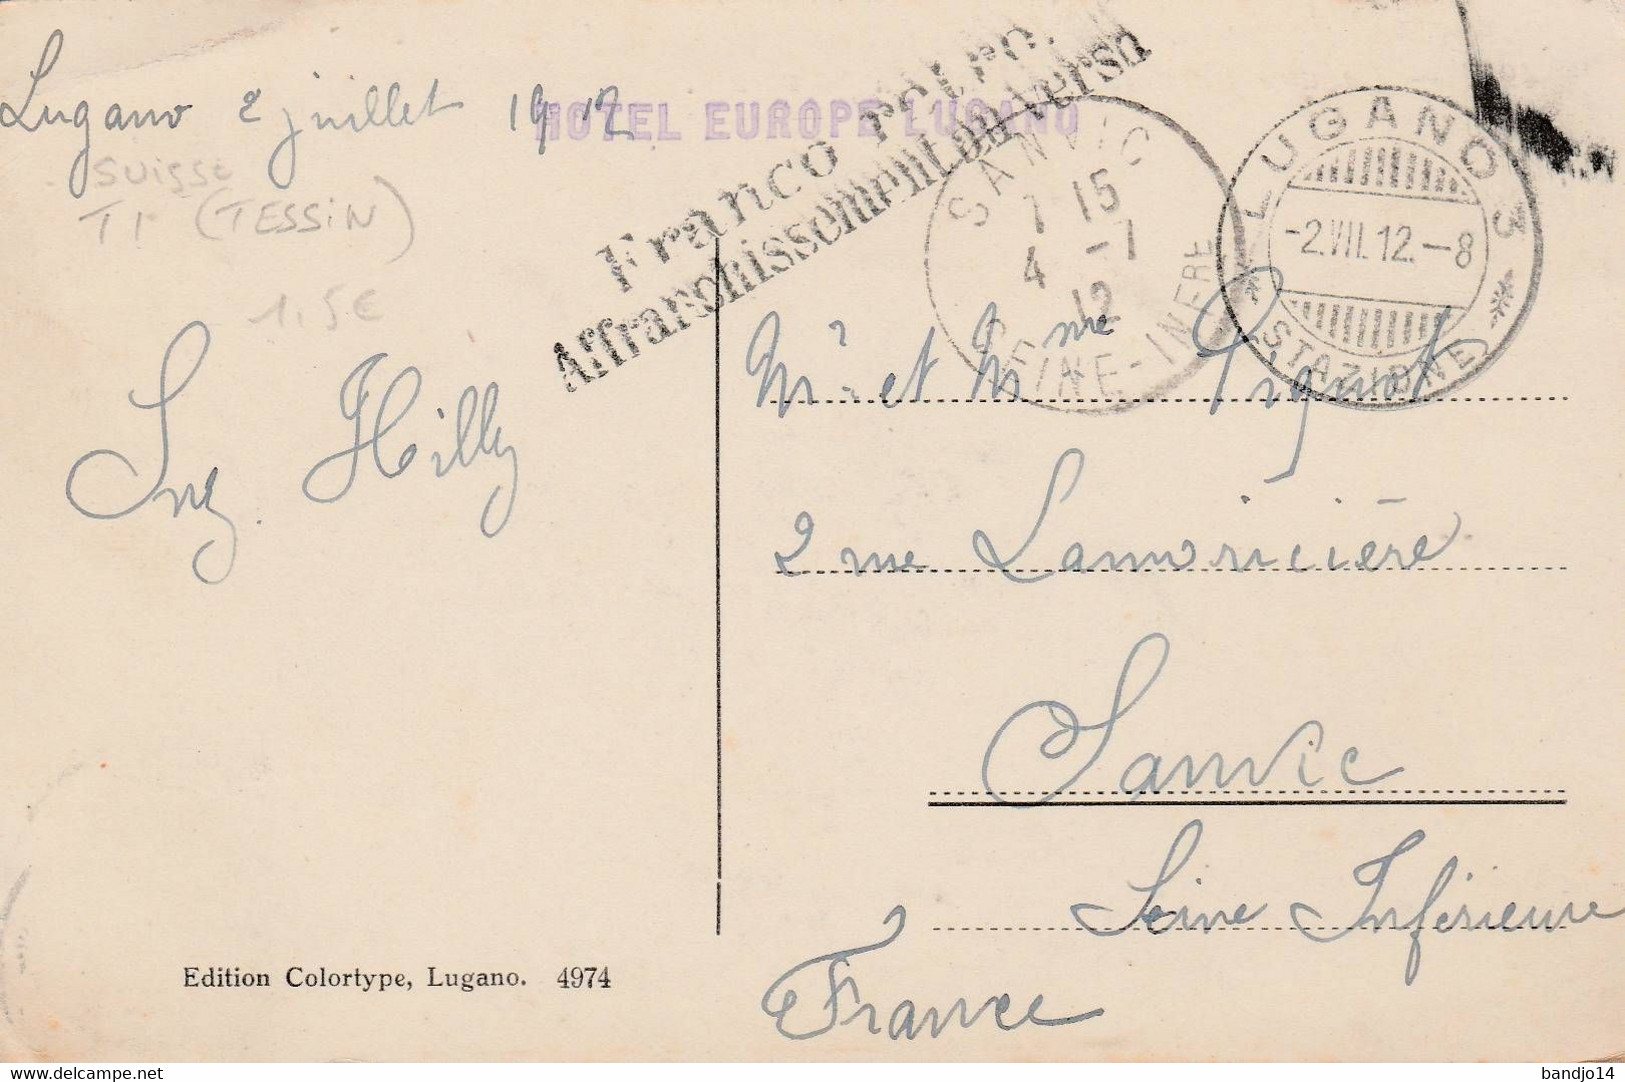 Lugano 2 juillet 1912
HOTEL EUROPE LUGANO
Franco retro.
Affranchissement au verso
SUISSE
TI (TESSIN)
1,5€
SANVIC
7 15
4 -7
12
SEINE-INFRE
LUGANO 3
-2.VII.12.-8
STAZIONE
Suz. Hilly
Mr. et Mme Pignot
2 rue Lamoricière
Sanvic
Seine Inférieure
France
Edition Colortype, Lugano. 4974
bandjo14